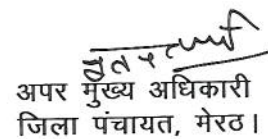 अपर मुख्य अधिकारी
जिला पंचायत, मेरठ।